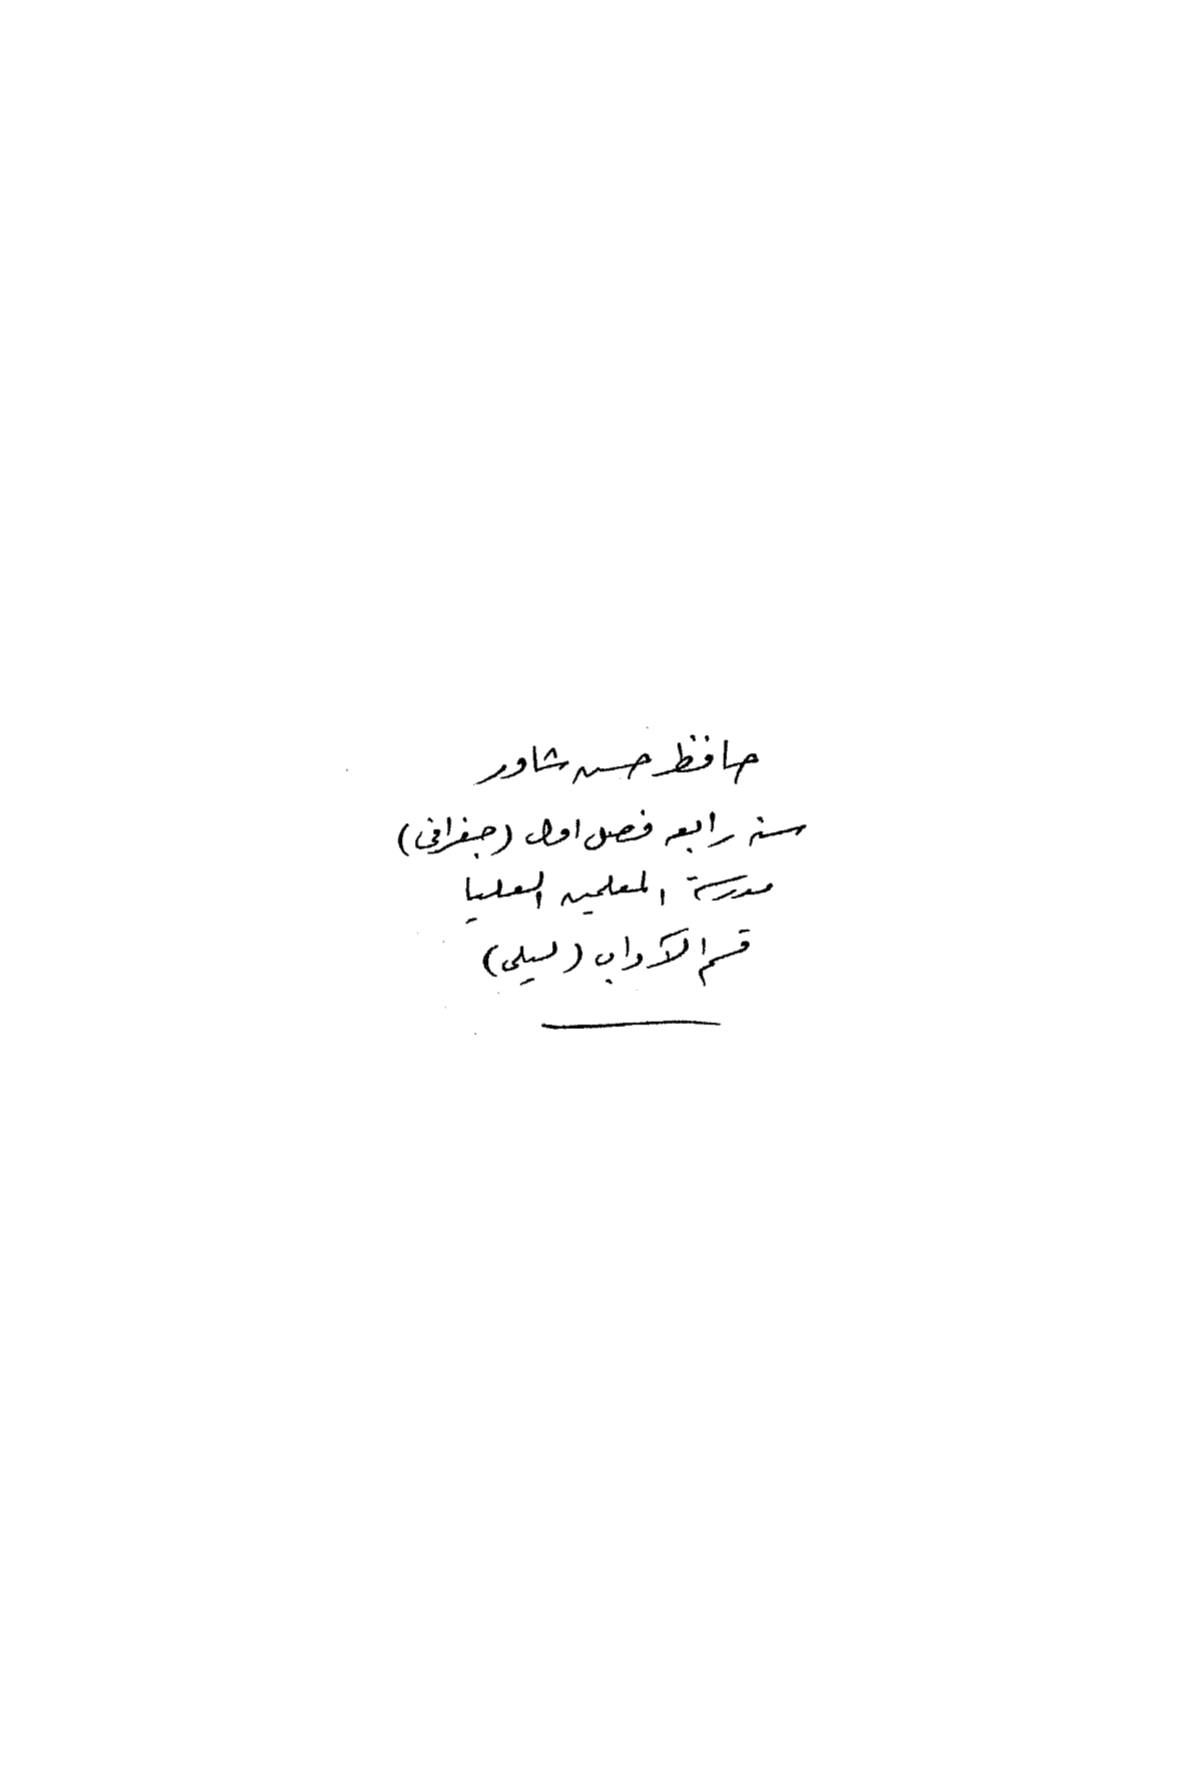 حافظ حسن شاور
سنة رابعه فصل اول (جغرافى)
مدرسة المعلمين العليا
قسم الآداب (ليلى)